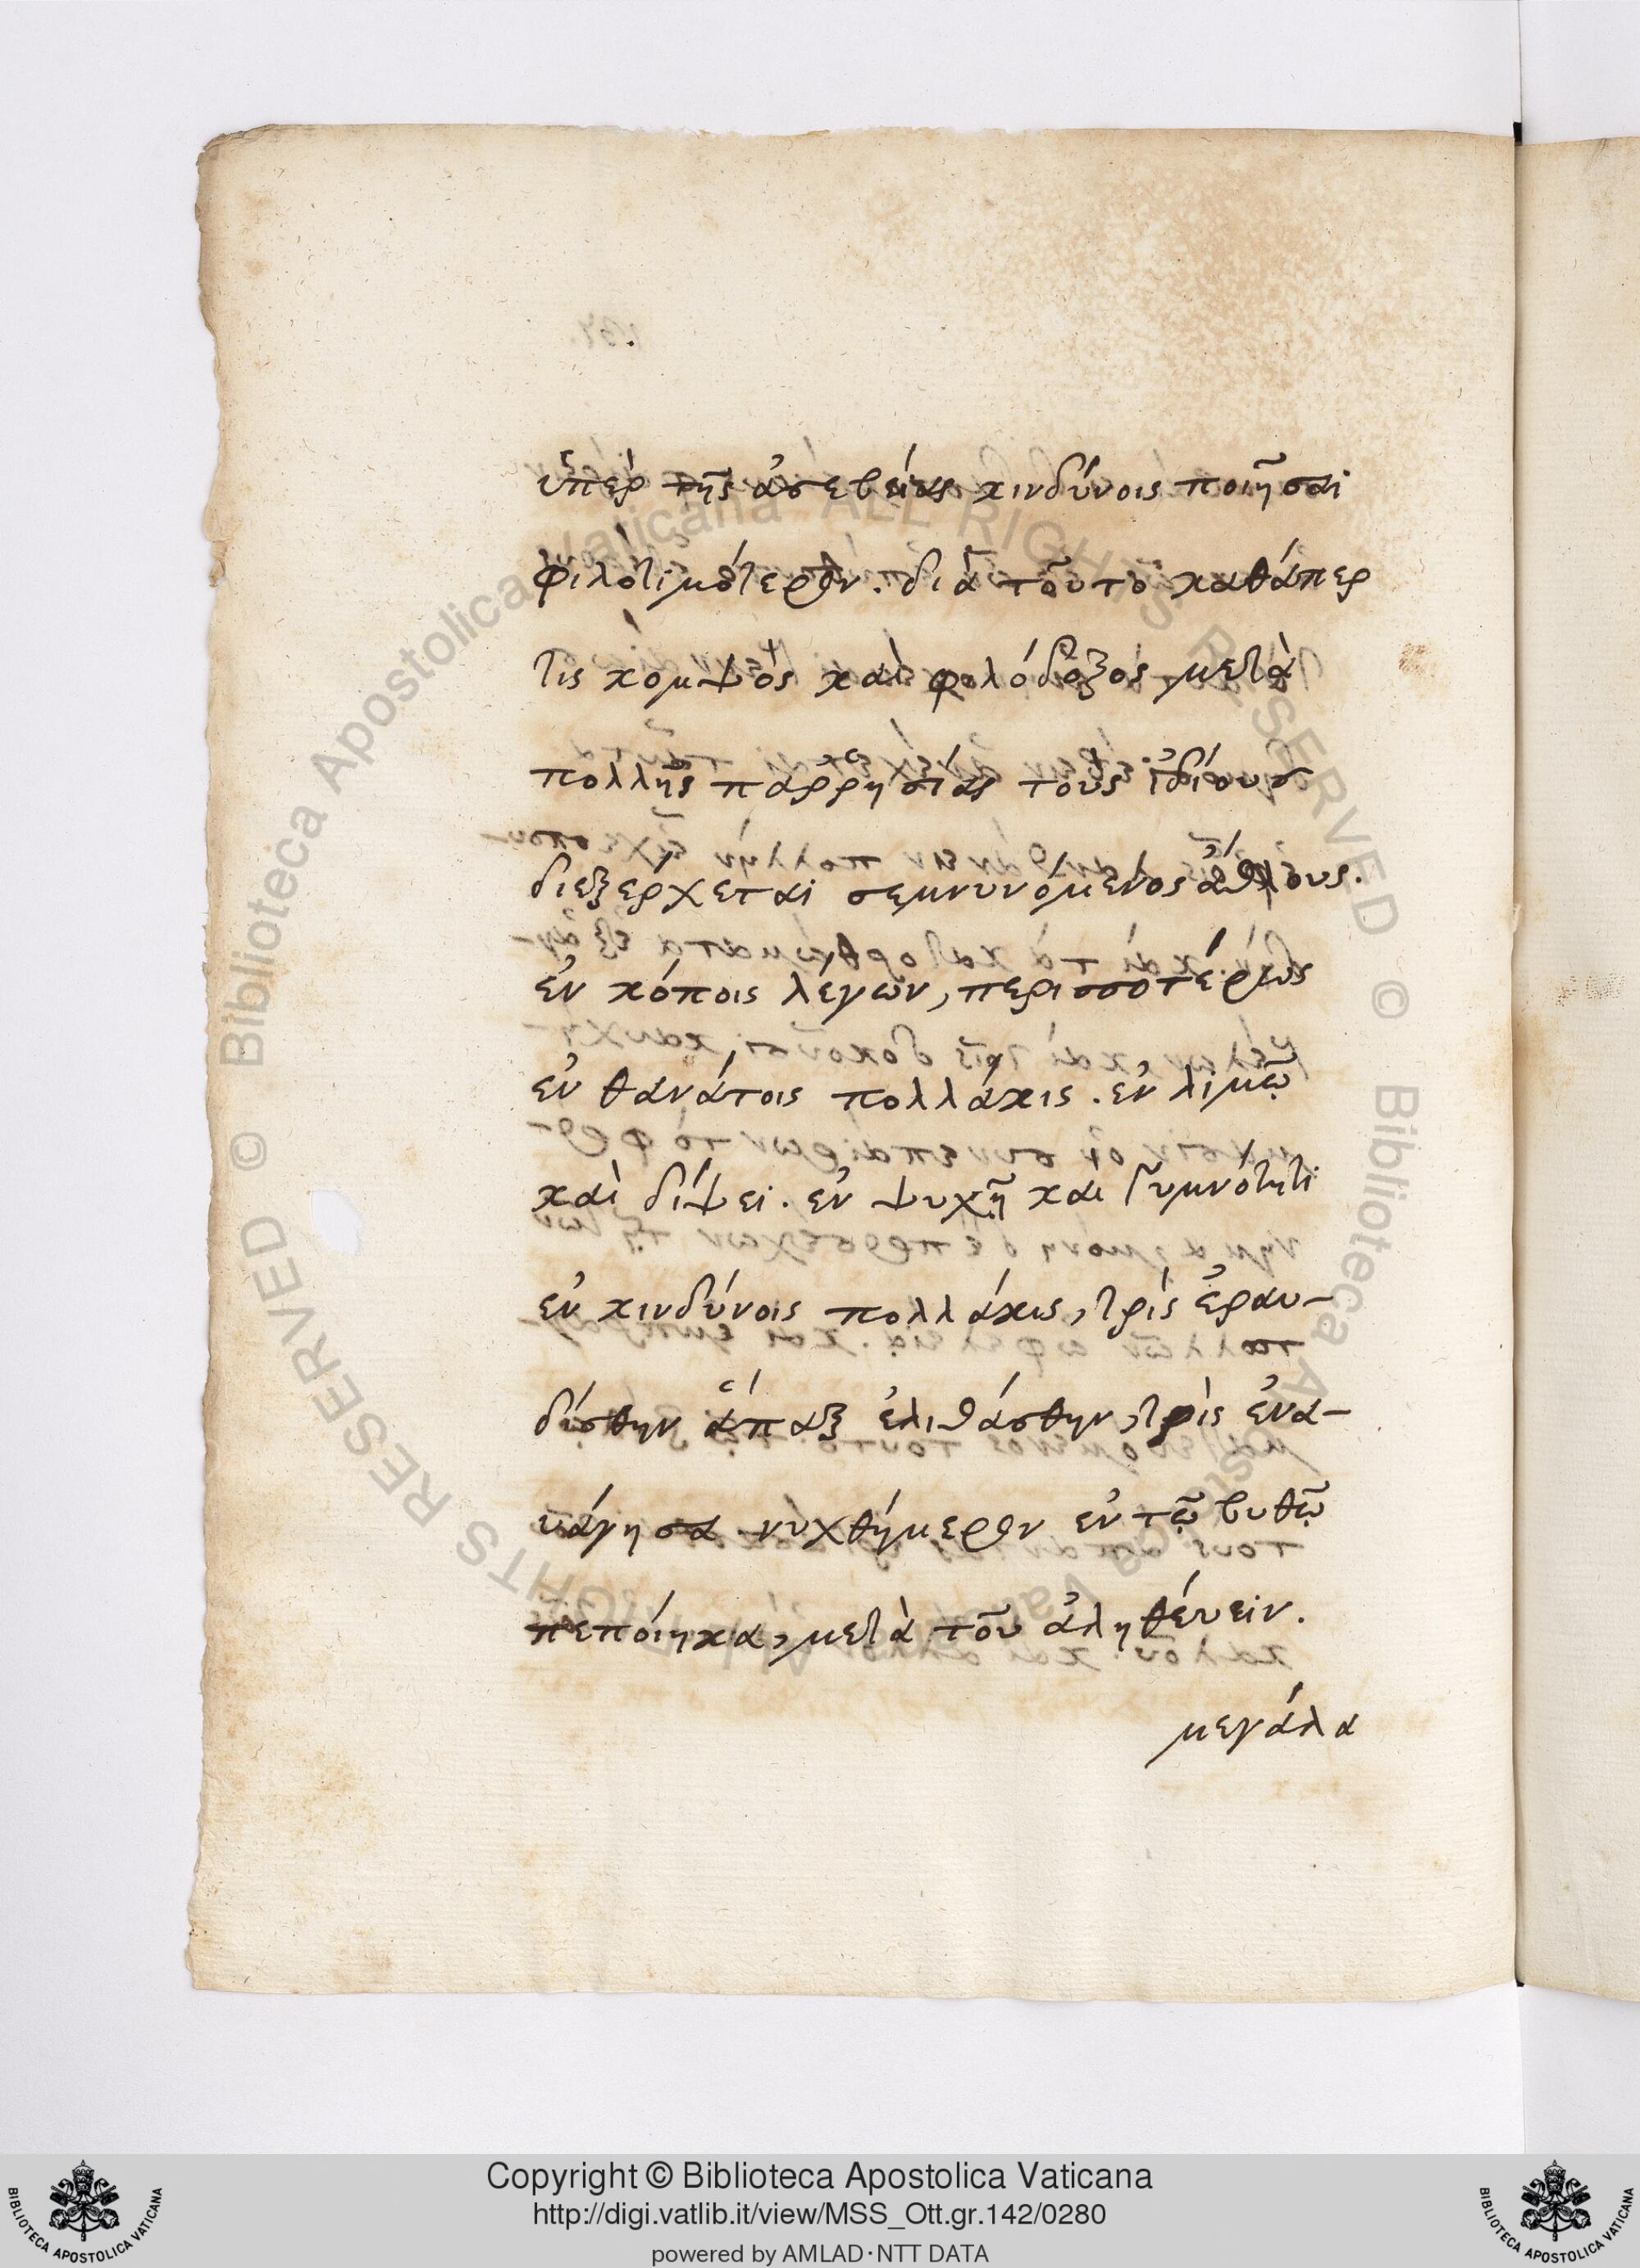 ὑπὲρ τῆς ἀσεβείας κινδύνοις ποιῆσαι
φιλοτιμότερον. διὰ τοῦτο καθάπερ
τις κομψὸς καὶ φιλόδοξος μετὰ
πολλῆς παῤῥησίας τοὺς ἰδίους
διεξέρχεται σεμνυνόμενος ἄθλους.
ἐν κόποις λέγων, περισσοτέρως
ἐν θανάτοις πολλάκις. ἐν λιμῷ
καὶ δίψει. ἐν ψυχῇ και γυμνότητι
ἐν κινδύνοις πολλάκις, τρὶς ἐραυ-
δίσθην ἅπαξ ἐλιθάσθην, τρὶς ἐνα-
υάγησα νυχθήμερον ἐν τῷ βυθῷ
πεποίηκα, μετὰ τοῦ ἀληθέυειν.
μεγάλα
Copyright © Biblioteca Apostolica Vaticana
http://digi.vatlib.it/view/MSS_Ott.gr.142/0280
powered by AMLAD·NTT DATA
BIBLIOTECA APOSTOLICA VATICANA
BIBLIOTECA APOSTOLICA VATICANA